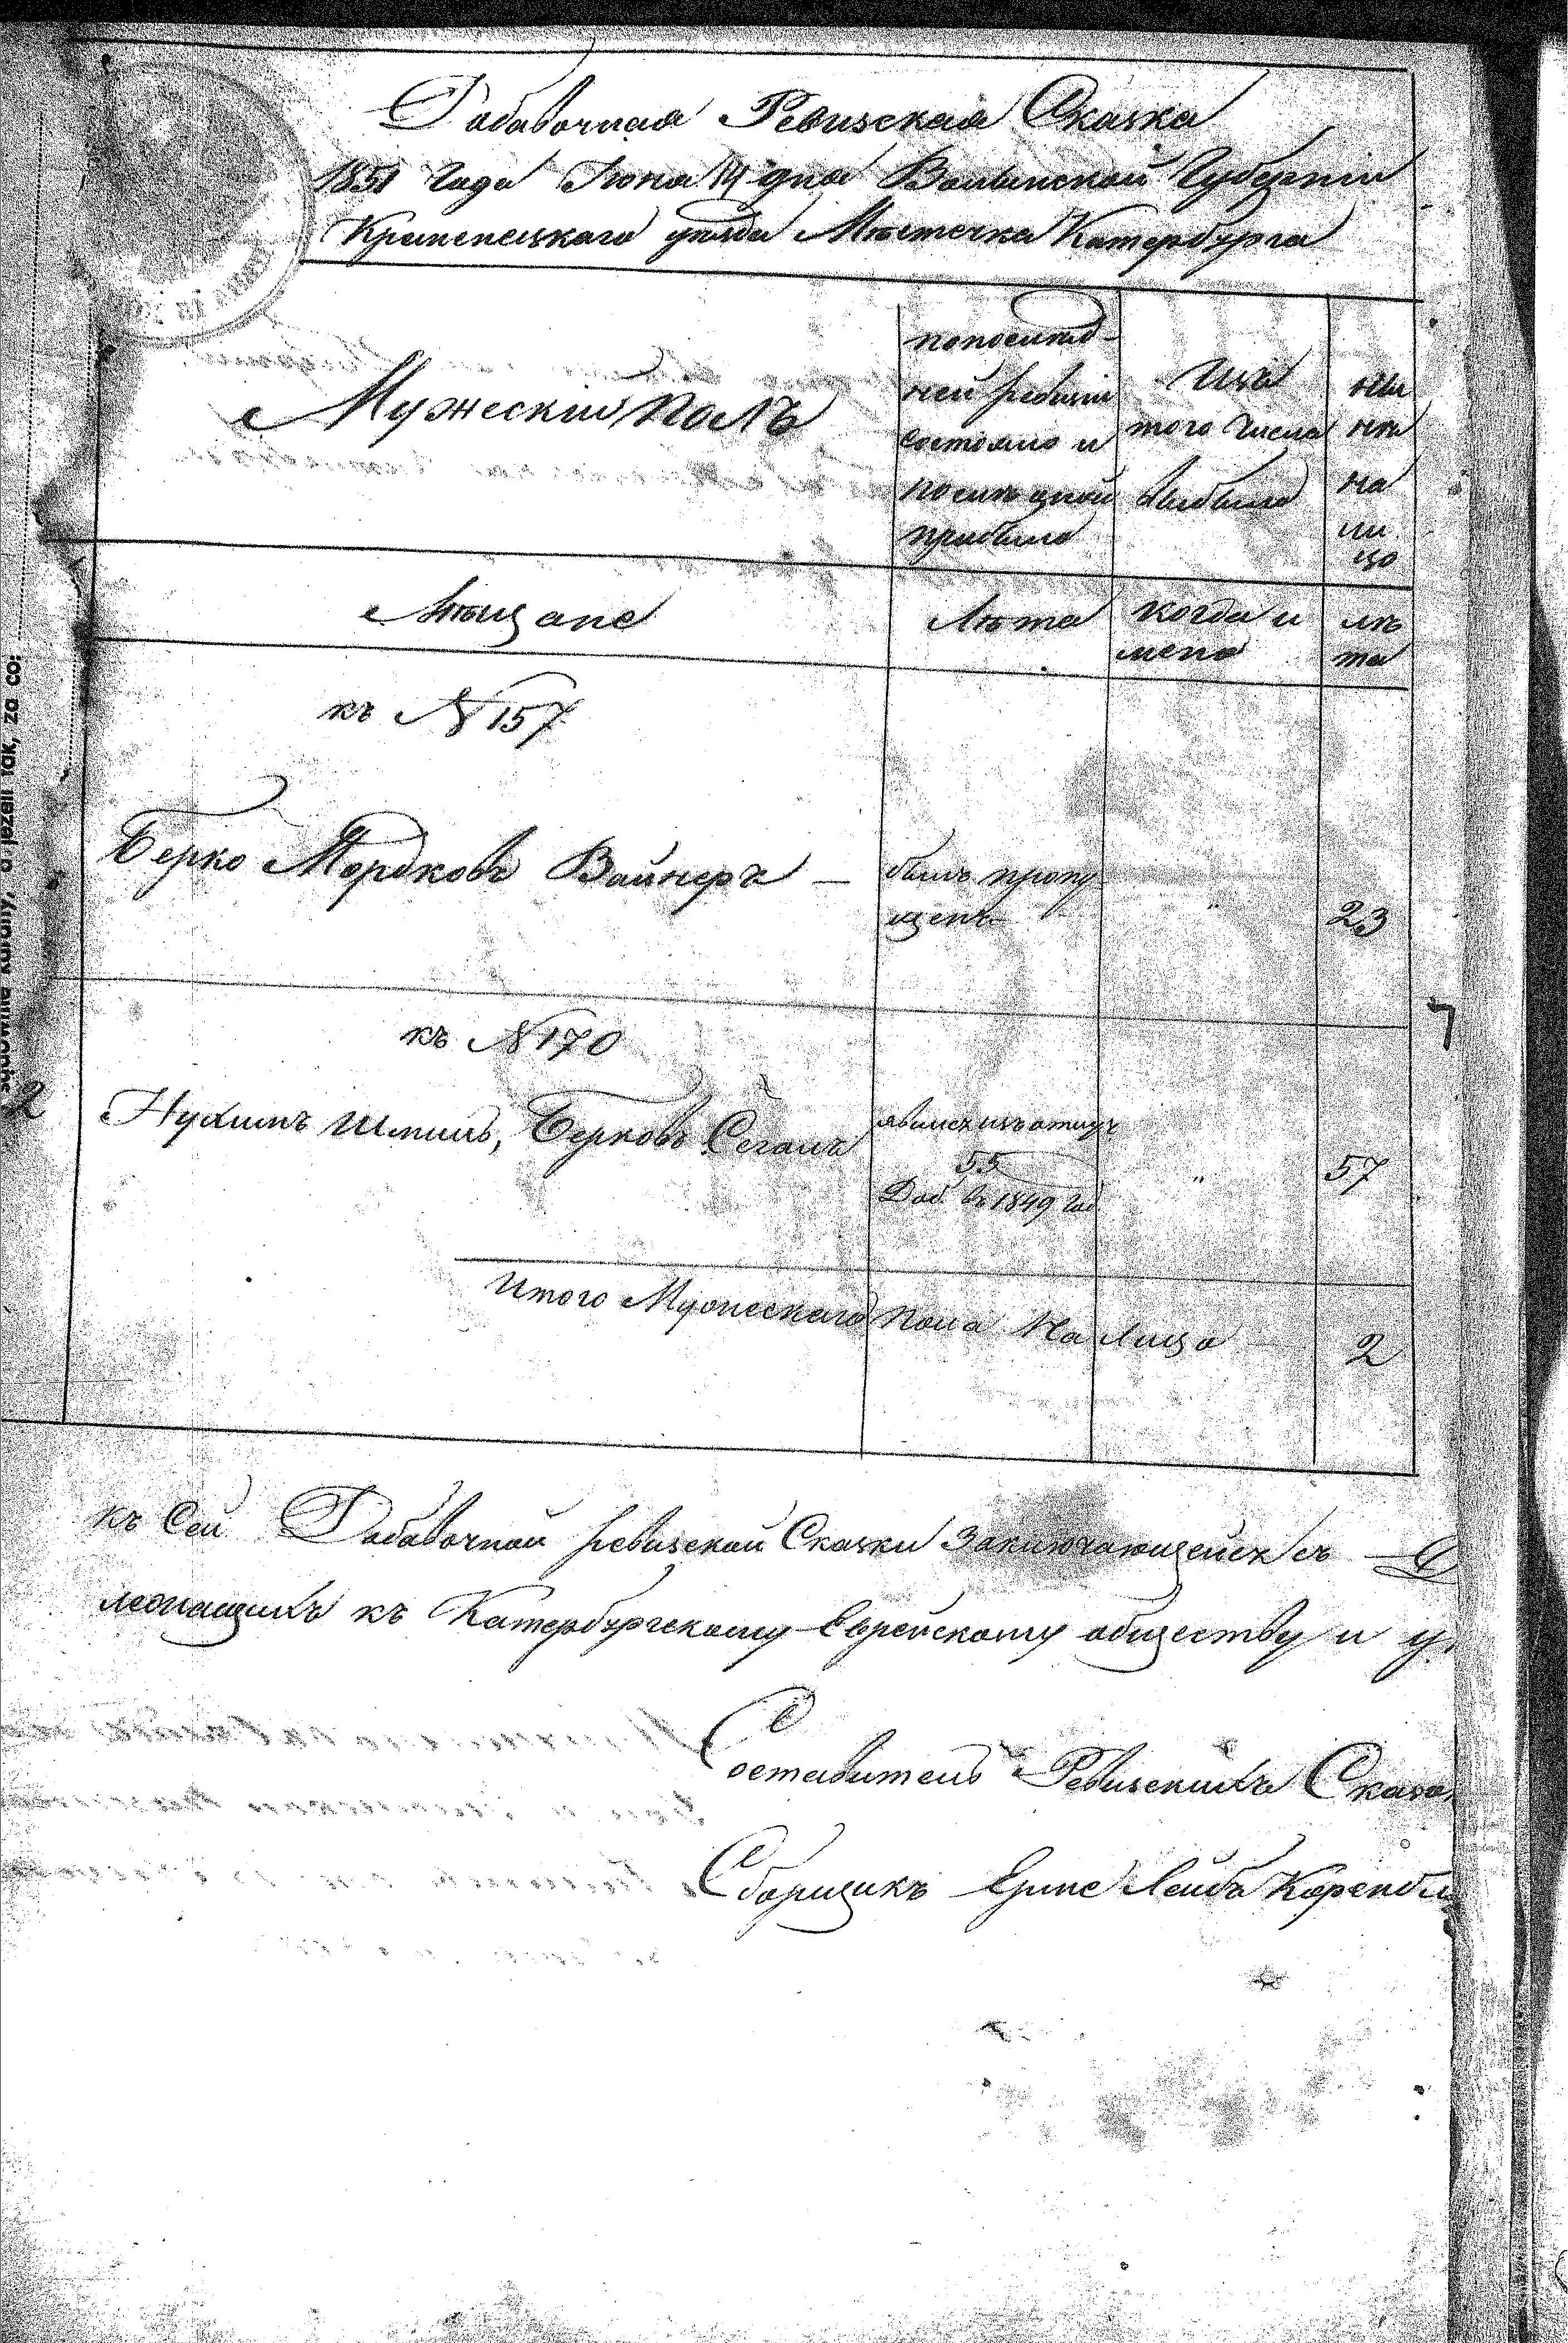 Дабавочная Ревизская Сказка
1851 Года Июня 14 дня Волынской Губерніи
Кременецкаго уѣзда Мѣстечка Катербурга
Мужескій полъ
попослѣд-
ней ревизіи
состояло и
послѣ оной
прибыло
Изъ
того числа
выбыло
ны
нѣ
на
ли
цо
Мѣщане
Лѣта
когда и
мено
лѣ
та
къ № 157
Берко Мордковъ Вайнеръ —
былъ пропу
щенъ
"
23
къ № 170
2
Нухимъ Шмиль, Берковъ Сегалъ
55
Доб въ 1849 год
"
57
Итого Мужескаго пола На Лицо
2
7
къ Сей Дабавочной ревизской Сказки Заключающейся въ
лежащихъ къ Катербургскому Еврейскому обществу и
Составитель Ревизскихъ
Сборщикъ Лейба